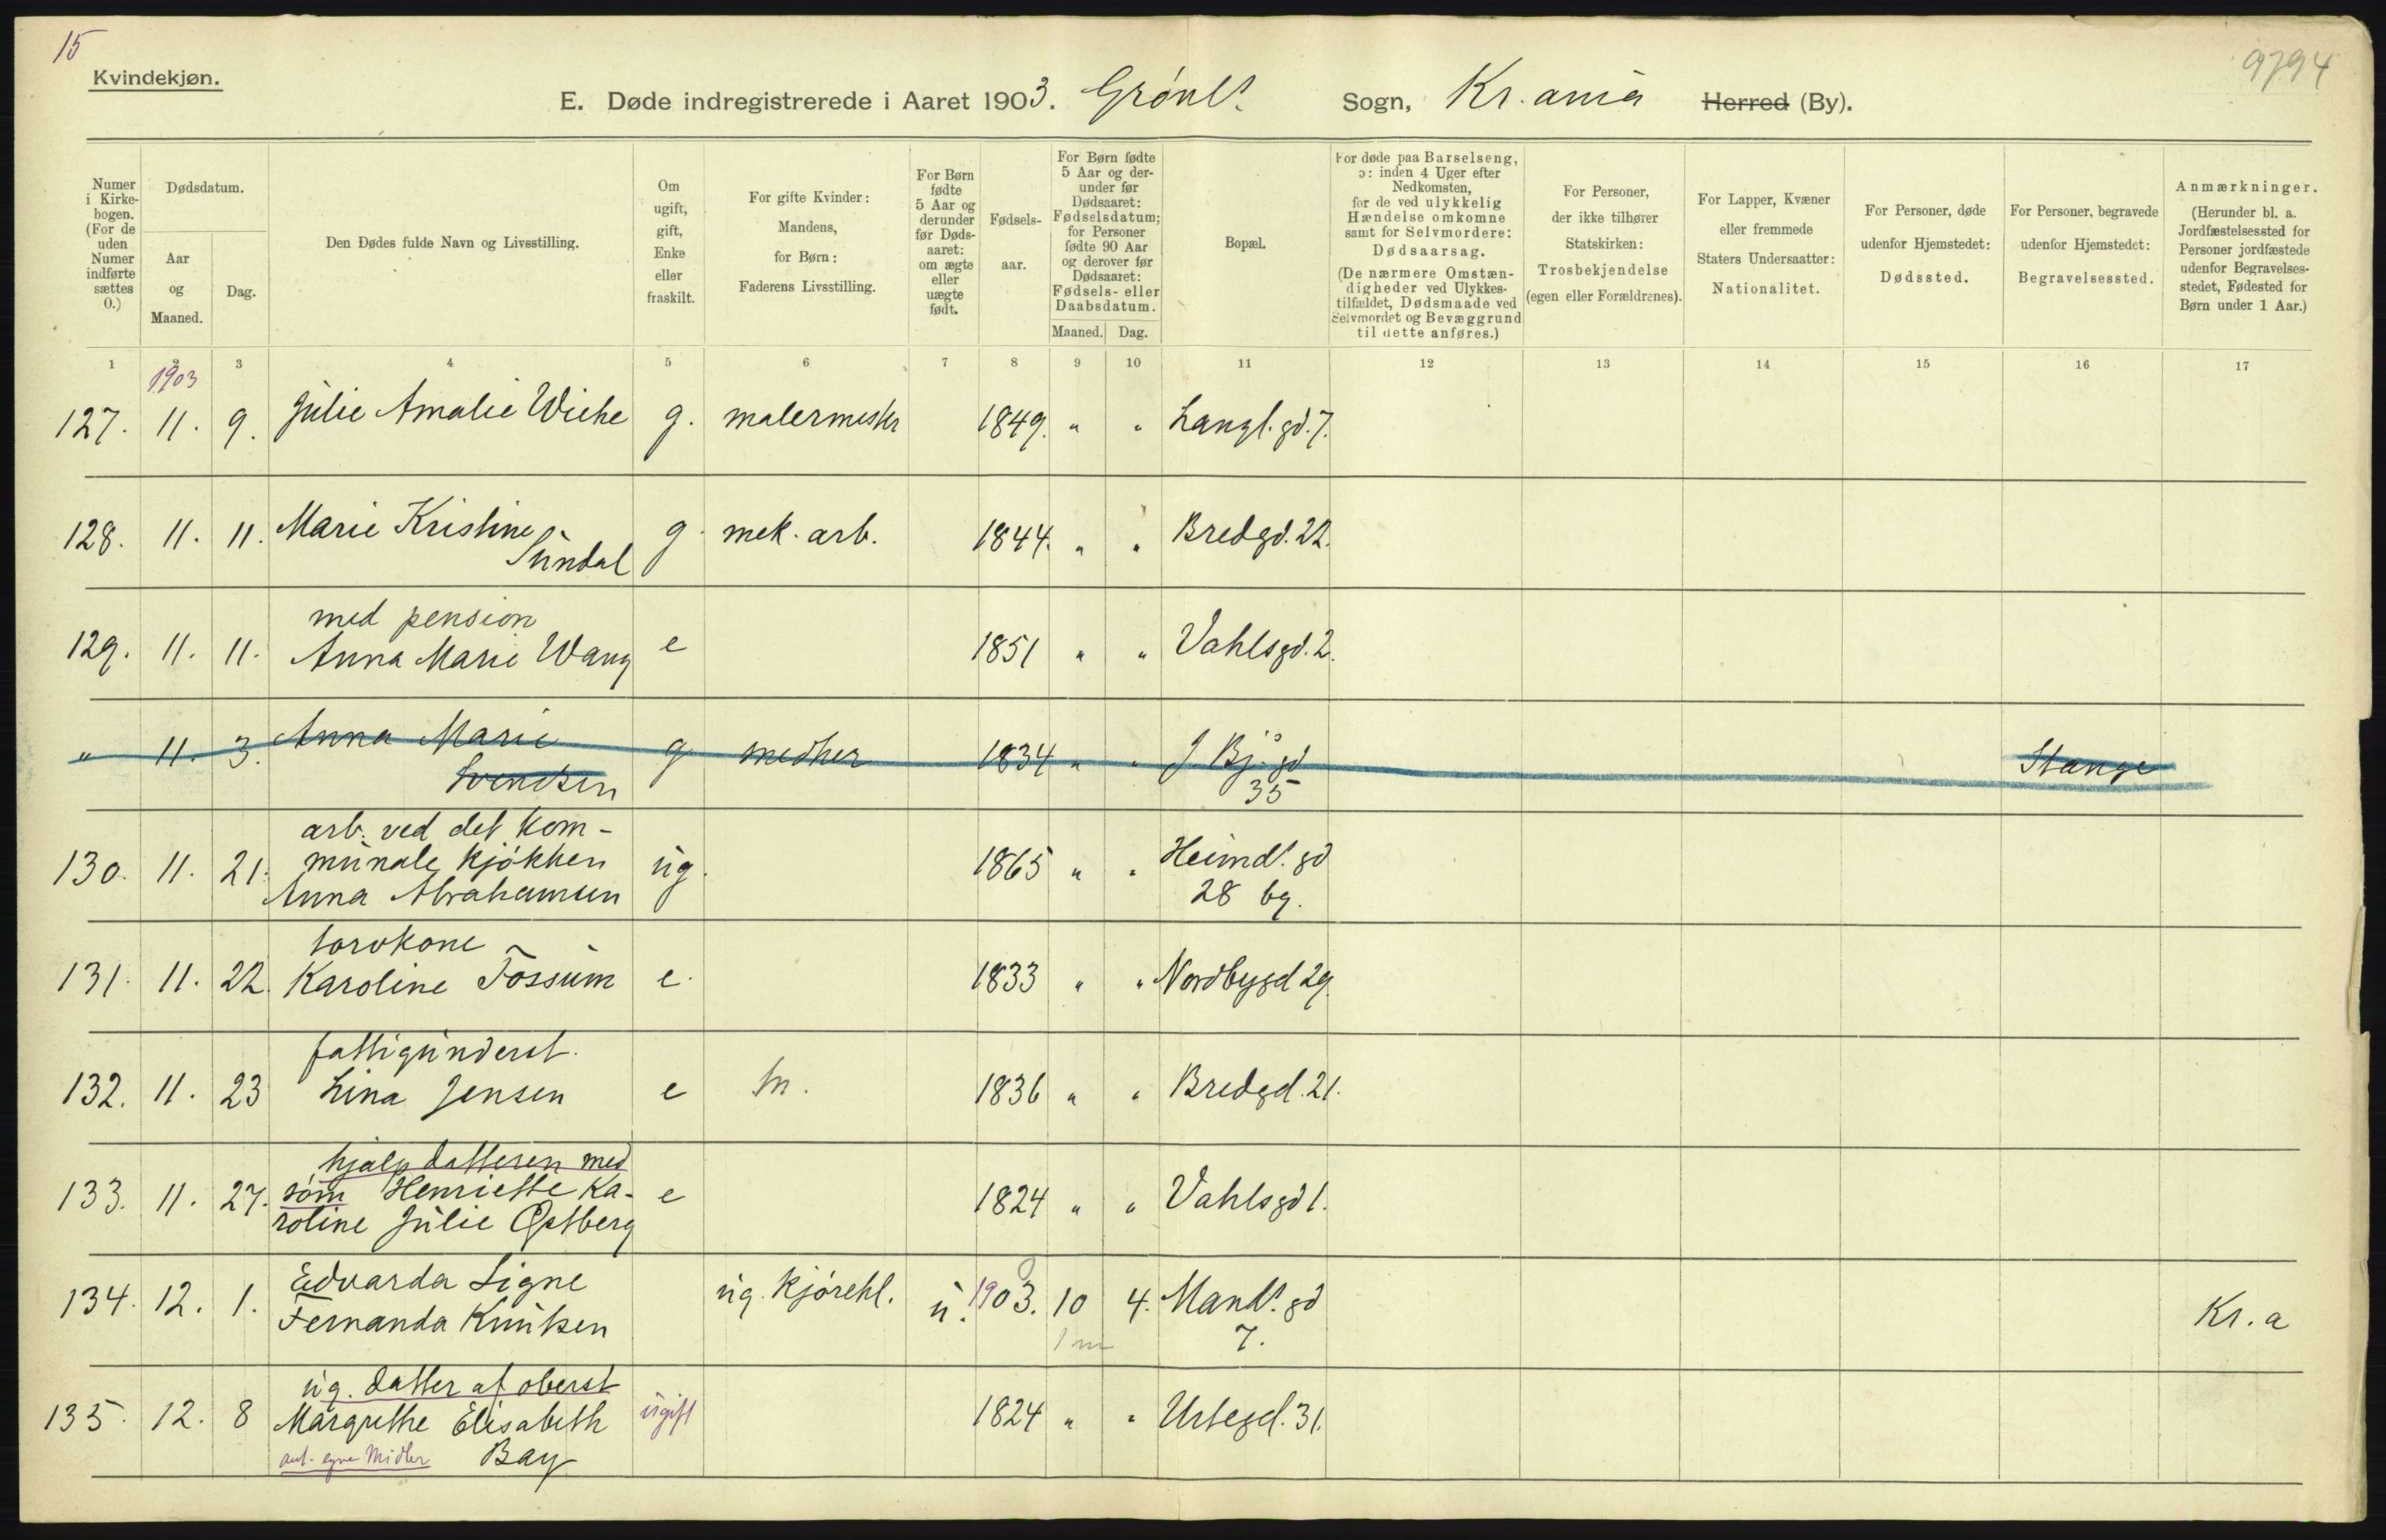 15
9794
Kvindekjøn.
E. Døde indregistrerede i Aaret 1903. Grønl. Sogn, Kr.ania Herred (By).
Numer i Kirkebogen. (For de uden Numer indførte sættes 0.)
Dødsdatum.
Aar og Maaned.
Dag.
Den Dødes fulde Navn og Livsstilling.
Om ugift, gift, Enke eller fraskilt.
For gifte Kvinder: Mandens, for Børn: Faderens Livsstilling.
For Børn fødte 5 Aar og derunder før Dødsaaret: om ægte eller uægte født.
Fødselsaar.
For Børn fødte 5 Aar og derunder før Dødsaaret: Fødselsdatum; for Personer fødte 90 Aar og derover før Dødsaaret: Fødsels- eller Daabsdatum.
Maaned. Dag.
Bopæl.
For døde paa Barselseng, ɔ: inden 4 Uger efter Nedkomsten, for de ved ulykkelig Hændelse omkomne samt for Selvmordere: Dødsaarsag. (De nærmere Omstændigheder ved Ulykkestilfældet, Dødsmaade ved Selvmordet og Bevæggrund til dette anføres.)
For Personer, der ikke tilhører Statskirken: Trosbekjendelse (egen eller Forældrenes).
For Lapper, Kvæner eller fremmede Staters Undersaatter: Nationalitet.
For Personer, døde udenfor Hjemstedet: Dødssted.
For Personer, begravede udenfor Hjemstedet: Begravelsessted.
Anmærkninger. (Herunder bl. a. Jordfæstelsessted for Personer jordfæstede udenfor Begravelsesstedet, Fødested for Børn under 1 Aar.)
1 2 3 4 5 6 7 8 9 10 11 12 13 14 15 16 17
1903
127. 11. 9. Julie Amalie Wiche g. malermester 1849. " " Langl. gd. 7.
128. 11. 11. Marie Kristine g. mek. arb. 1844. " " Bredgd. 22.
Sundal
med pension
129. 11. 11. Anna Marie Wang e 1851 " " Vahlsgd. 2.
" 11. 3. Anna Marie g 1834 " " J. Bj. gd Stange
Svendsen 35
arb. ved det kom-
130. 11. 21. munale kjøkken ug. 1865 " " Heimd. gd
Anna Abrahamsen 28 bg.
torvkone
131. 11. 22. Karoline Fossum e. 1833 " " Nordbygd 29.
fattigunderst.
132. 11. 23 Lina Jensen e 1836 " " Bredgd. 21.
hjalp datteren med
133. 11. 27. søm Henriette Ka- e 1824 " " Vahlsgd 1.
roline Julie Østberg
134. 12. 1. Edvarda Signe ug. kjørekl. u. 1903. 10 4. Mandl. gd Kr. a
Fernanda Knutsen 1 m 7.
ug. datter af oberst
135. 12. 8 Margrethe Elisabeth ugift 1824 " " Urtegd. 31.
ant. egne Midler Bay